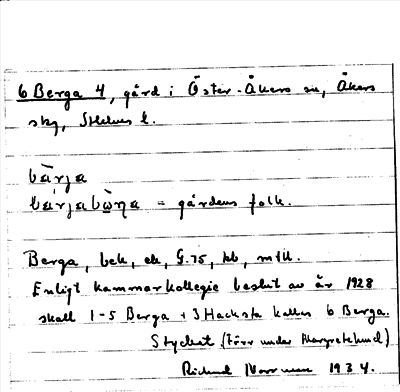 6 Berga 4, gård i Öster-Åkers sn, Åkers
skg, Sthlms l.
bàrja
bàrjabòna = gårdens folk.
Berga, bek, ek, G.75, kb, mtl.
Enligt kammarkollegie beslut av år 1928
skall 1-5 Berga + 3 Hacksta kallas 6 Berga.
Styckat (Förr under Margretelund)
Rickard Norrman 1934.